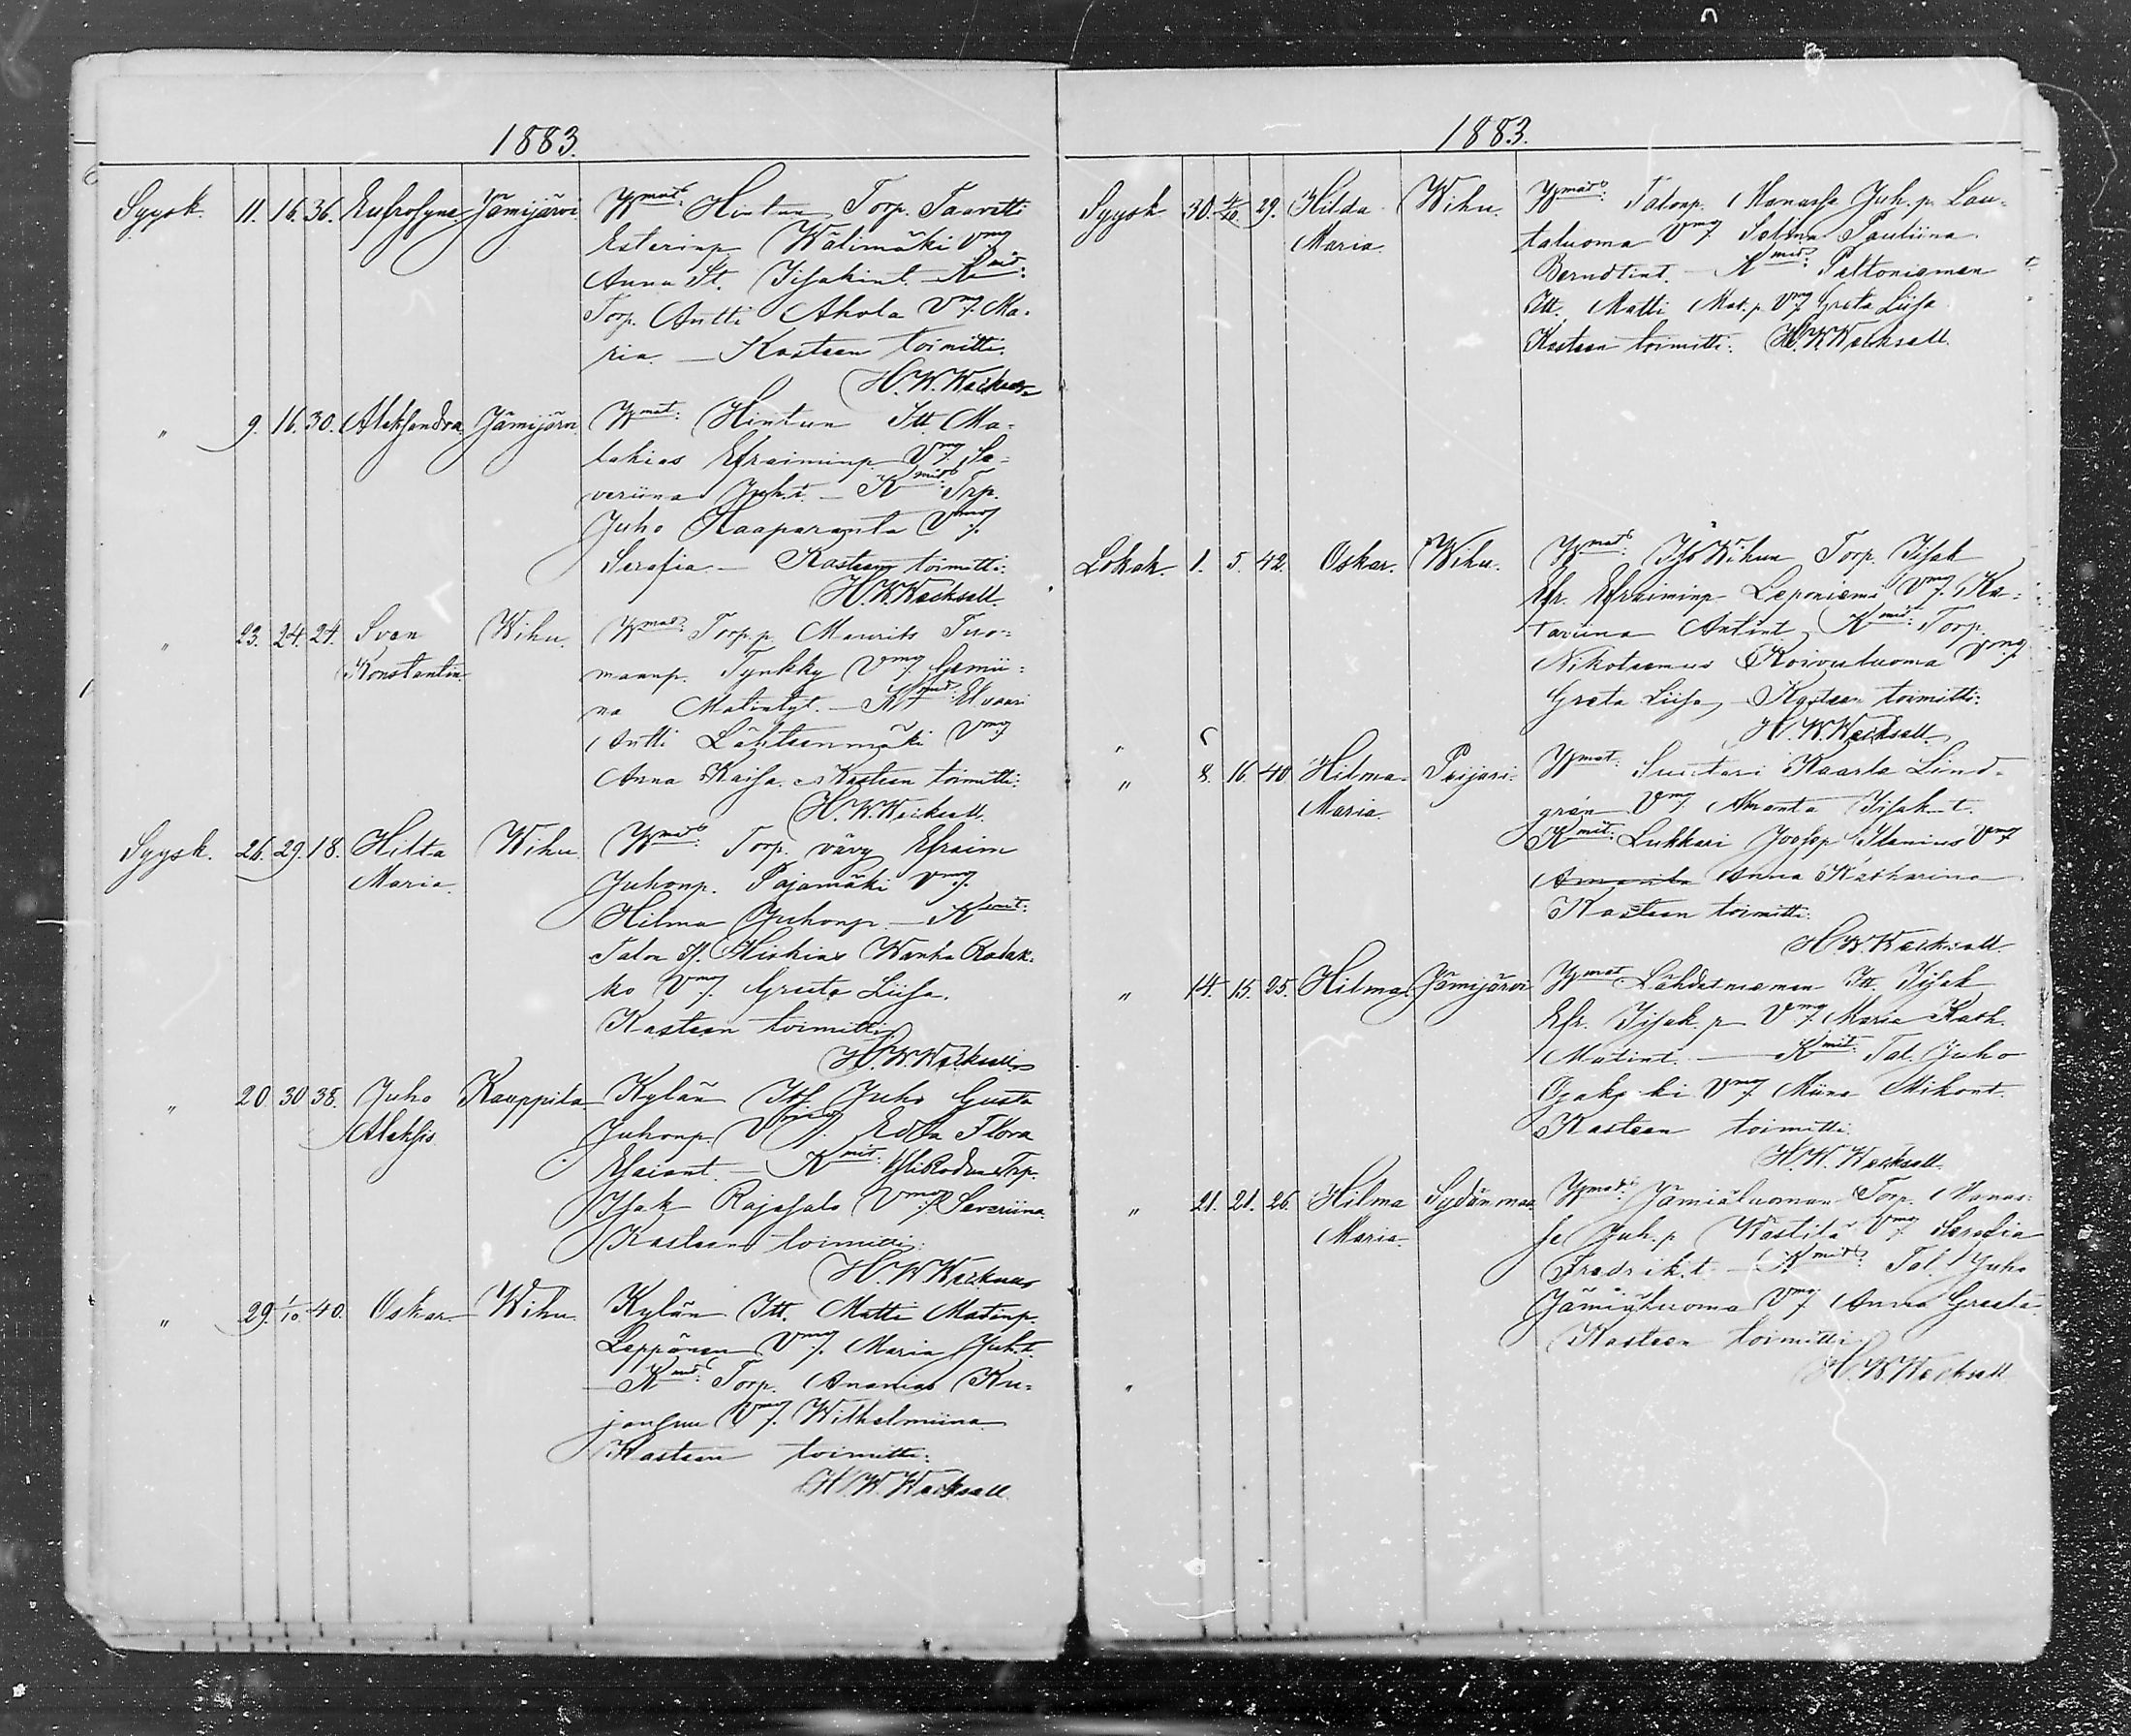 1883.
Syysk. 11. 16. 36. Eufrosyne Jämijärvi Ymmät: Hintun Torp. Taavetti
Esterinp Wälimäki Vmo
Anna St. Iisakint. Kmit:
Torp. Antti Ahola Vmo Ma-
ria — Kasteen toimitti:
H. W. Wacksell
" 9. 16. 30. Aleksandra Jämijärvi Ymät: Hintun Itt. Ma-
lakias Efraiminp Vmo Se-
veriina Juh.t. — Kmit: Trp.
Juho Haaparanta Vmo
Serafia — Kasteen toimitti:
H. W. Wacksell.
" 23. 24. 24. Sven Wihu. Torp.p. Maurits Tuo-
Konstantin
maanp. Tynkky Vmo
na Matintyt. — Kmit:
Antti Lähteenmäki Vmo
Anna Kaisa. Kasteen toimitti:
H. W. Wacksell.
Syysk. 26. 29. 18. Hilta Wihu Torp. vävy Efraim
Maria
Juhonp. Pajamäki Vmo
Hilma Juhonp — Kmit:
Talon Hiskias Wanha Rodak-
ko Vmo Greeta Liisa.
Kasteen toimitti
H. W. Wacksell
" 20 30 38. Juho Kauppila Kylän Itt Juho Gusta
Aleksis
Juhonp. Vmo Edla Flora
Esaiant. — Kmit: Trp.
Isak Rajasalo Vmo Severiina
Kasteen toimitti:
H. W. Wacksell
" 29. 1/10 40. Oskar Wihu Kylän Itt. Matti Matinp.
Leppänen Vmo Maria Juh.t.
— Kmit: Torp. Ananias Ku-
Vmo Wilhelmiina
Kasteen toimitti:
H. W. Wacksell
1883.
Syysk 30. 4/10. 29. Hilda Wihu. Talonp. Manasse Juh. p. Lau-
Maria
taluoma Vmo Selina Pauliina
Berndtint. — Kmit: Peltoniemen
Itt. Matti Mat. p. Vmo Greta Liisa
Kasteen toimitti: H. W. Wacksell.
Lokak. 1. 5. 42. Oskar. Wihu. Torp. Iisak
Efr. Efraiminp Leponiemi Vmo Ka-
tariina Antint Kmit: Torp.
Nikoteemus Koivuluoma Vmo
Greta Liisa — Kasteen toimitti:
H. W. Wacksell.
"
" 8. 16 40 Hilma Peijari Ymät: Suutari Kaarlo Lind-
Maria
grén Vmo Amanta Iisak.t.
Kmit: Lukkari Joosep Ilanius Vmo
Amanta Anna Katharina
Kasteen toimitti:
H. W. Wacksell
" 14. 15. 25. Hilma Jämijärvi Ymät: Lähdetniemen Itt. Iisak
Efr. Iisak. p Vmo Maria Kath.
Matint. — Kmit: Tal. Juho
Vmo Miina Mikont.
Kasteen toimitti
H. W. Wacksell
" 21. 21. 26. Hilma Sydänmaa Jämiäluoman Torp. Manas-
Maria
se Juh. p Wästilä Vmo Serafia
Fredrik.t. — Kmit: Tal. Juho
Jämiäluoma Vmo Anna Greeta
Kasteen toimitti
H. W. Wacksell
"